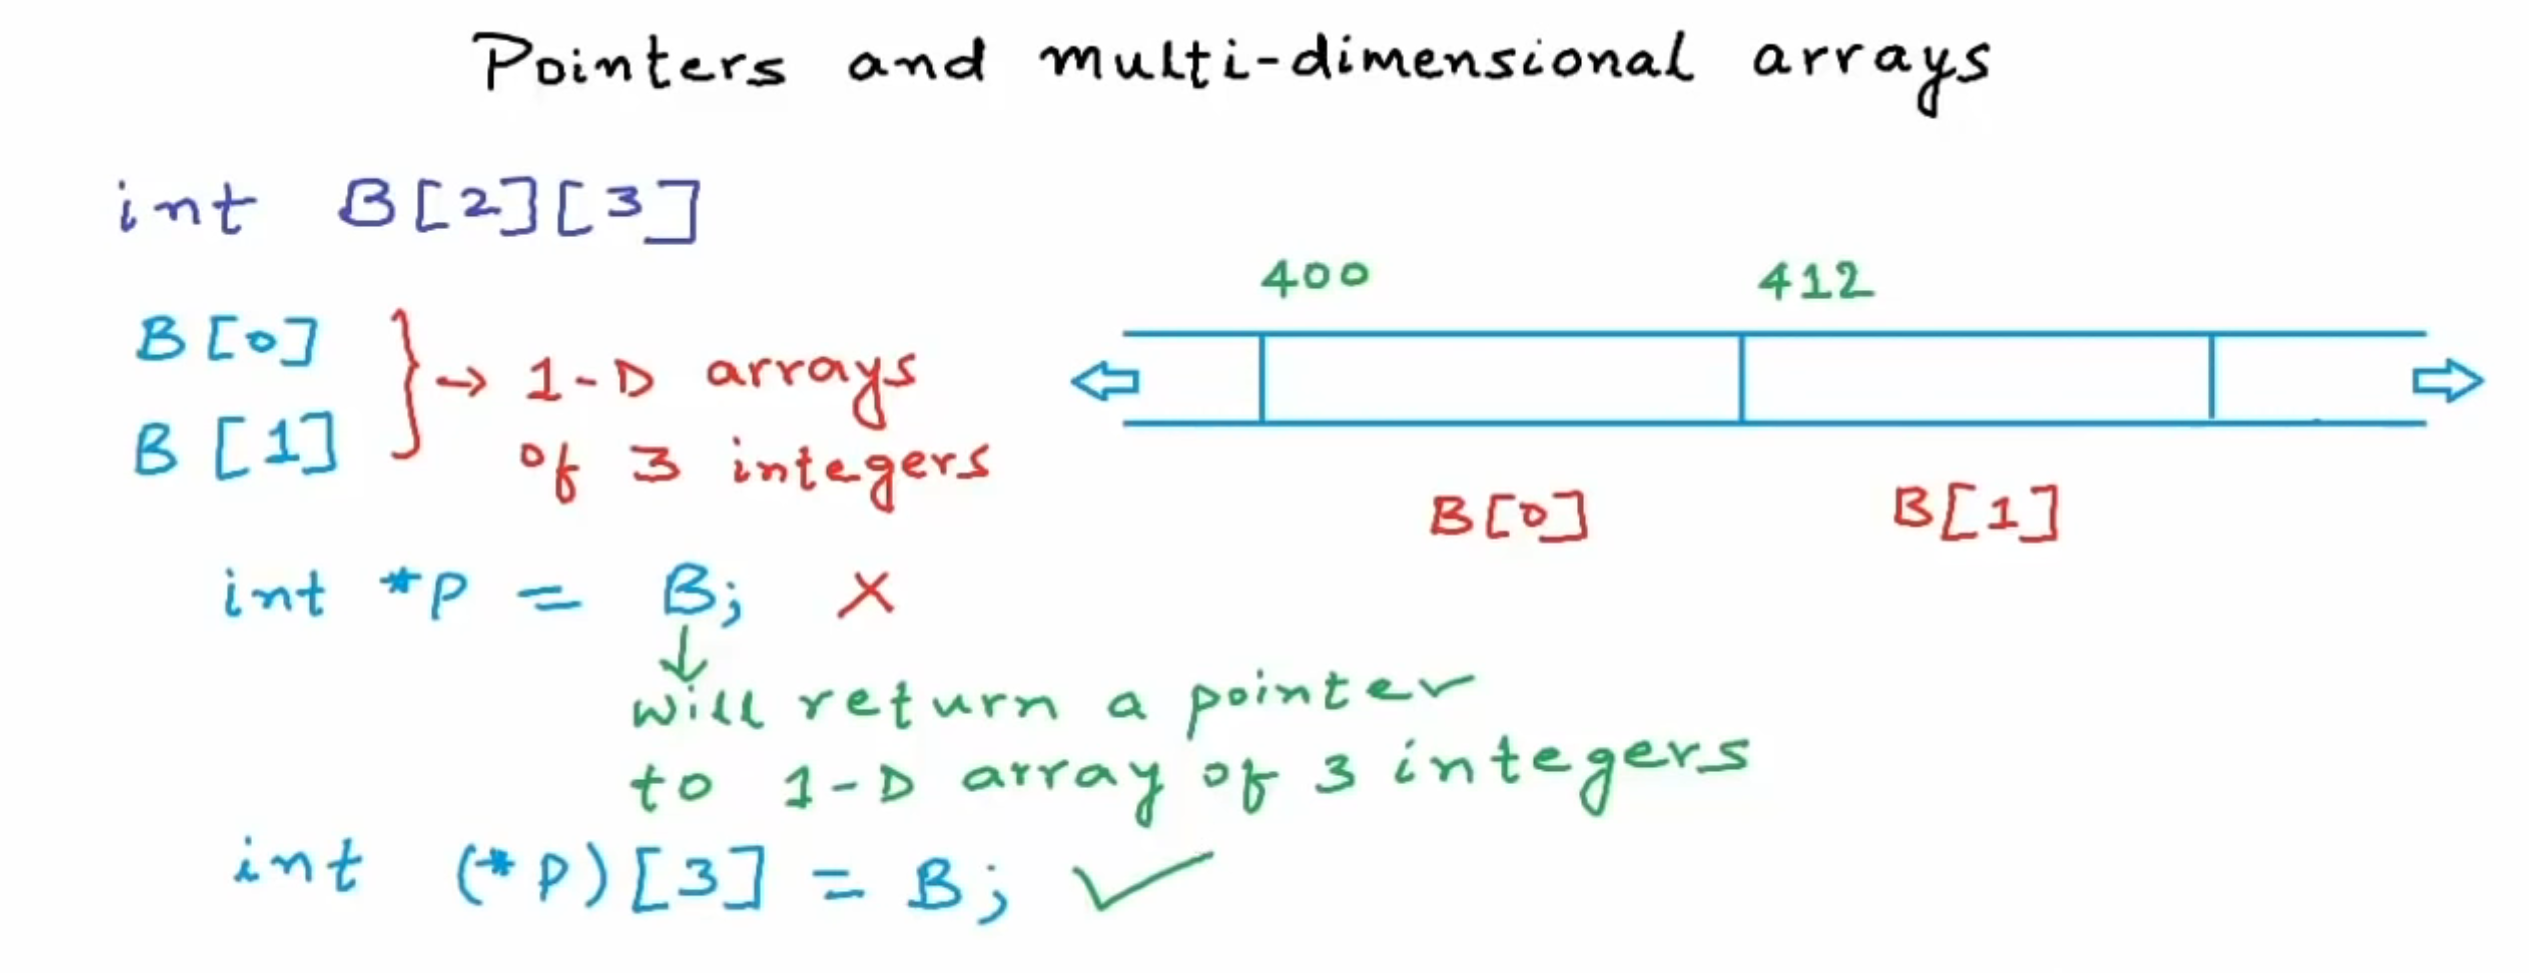 Pointers and multi-dimensional arrays
int B[2][3]
B[0]
B[1]
→ 1-D arrays
of 3 integers
400 412
B[0] B[1]
int *p = B; X
↓
will return a pointer
to 1-D array of 3 integers
int (*p)[3] = B; ✓